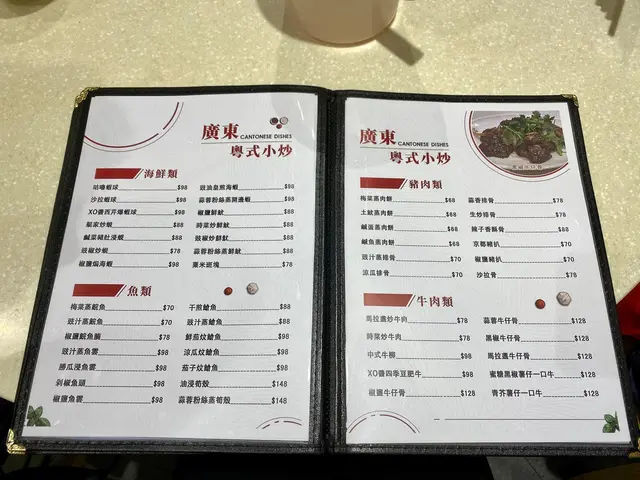 廣東 CANTONESE DISHES
粵式小炒
海鮮類
咕嚕蝦球 $98 豉油皇煎海蝦 $98
沙拉蝦球 $98 蒜蓉粉絲蒸開邊蝦 $98
XO醬西芹爆蝦球 $98 椒鹽鮮魷 $88
$88 時菜炒鮮魷 $88
鹹菜豬肚浸蝦 $88 豉椒炒鮮魷 $88
豉椒炒蜆 $78 蒜蓉粉絲蒸鮮魷 $88
椒鹽焗海蝦 $98 粟米斑塊 $78
魚類
梅菜蒸鯇魚 $70 干煎鱠魚 $88
豉汁蒸鯇魚 $70 豉汁蒸鱠魚 $88
椒鹽鯇魚腩 $78 鮮茄炆鱠魚 $88
豉汁蒸魚雲 $98 涼瓜炆鱠魚 $88
勝瓜浸魚雲 $98 茄子炆鱠魚 $88
剁椒魚頭 $98 油浸筍殼 $148
椒鹽魚雲 $98 蒜蓉粉絲蒸筍殼 $148
廣東 CANTONESE DISHES
粵式小炒
豬肉類
梅菜蒸肉餅 $68 蒜香排骨 $78
土魷蒸肉餅 $68 生炒排骨 $78
鹹蛋蒸肉餅 $68 辣子香酥骨 $88
鹹魚蒸肉餅 $68 京都豬扒 $70
豉汁蒸排骨 $70 椒鹽豬扒 $70
涼瓜排骨 $70 沙拉骨 $78
牛肉類
馬拉盞炒牛肉 $78 蒜蓉牛仔骨 $128
時菜炒牛肉 $78 黑椒牛仔骨 $128
中式牛柳 $98 馬拉盞牛仔骨 $128
XO醬四季豆肥牛 $98 蜜糖黑椒薯仔一口牛 $128
椒鹽牛仔骨 $128 青芥薯仔一口牛 $128